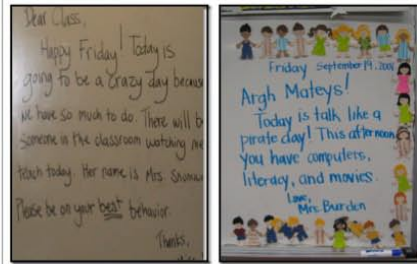 Dear Class,
Happy Friday! Today is
going to be a crazy day because
we have so much to do. There will be
someone in the classroom watching me
teach today. Her name is Mrs.
Please be on your best behavior.
Thanks,
Friday September 19, 2008
Argh Mateys!
Today is talk like a
pirate day! This afternoon
you have computers,
literacy, and movies.
Love,
Mrs. Burden